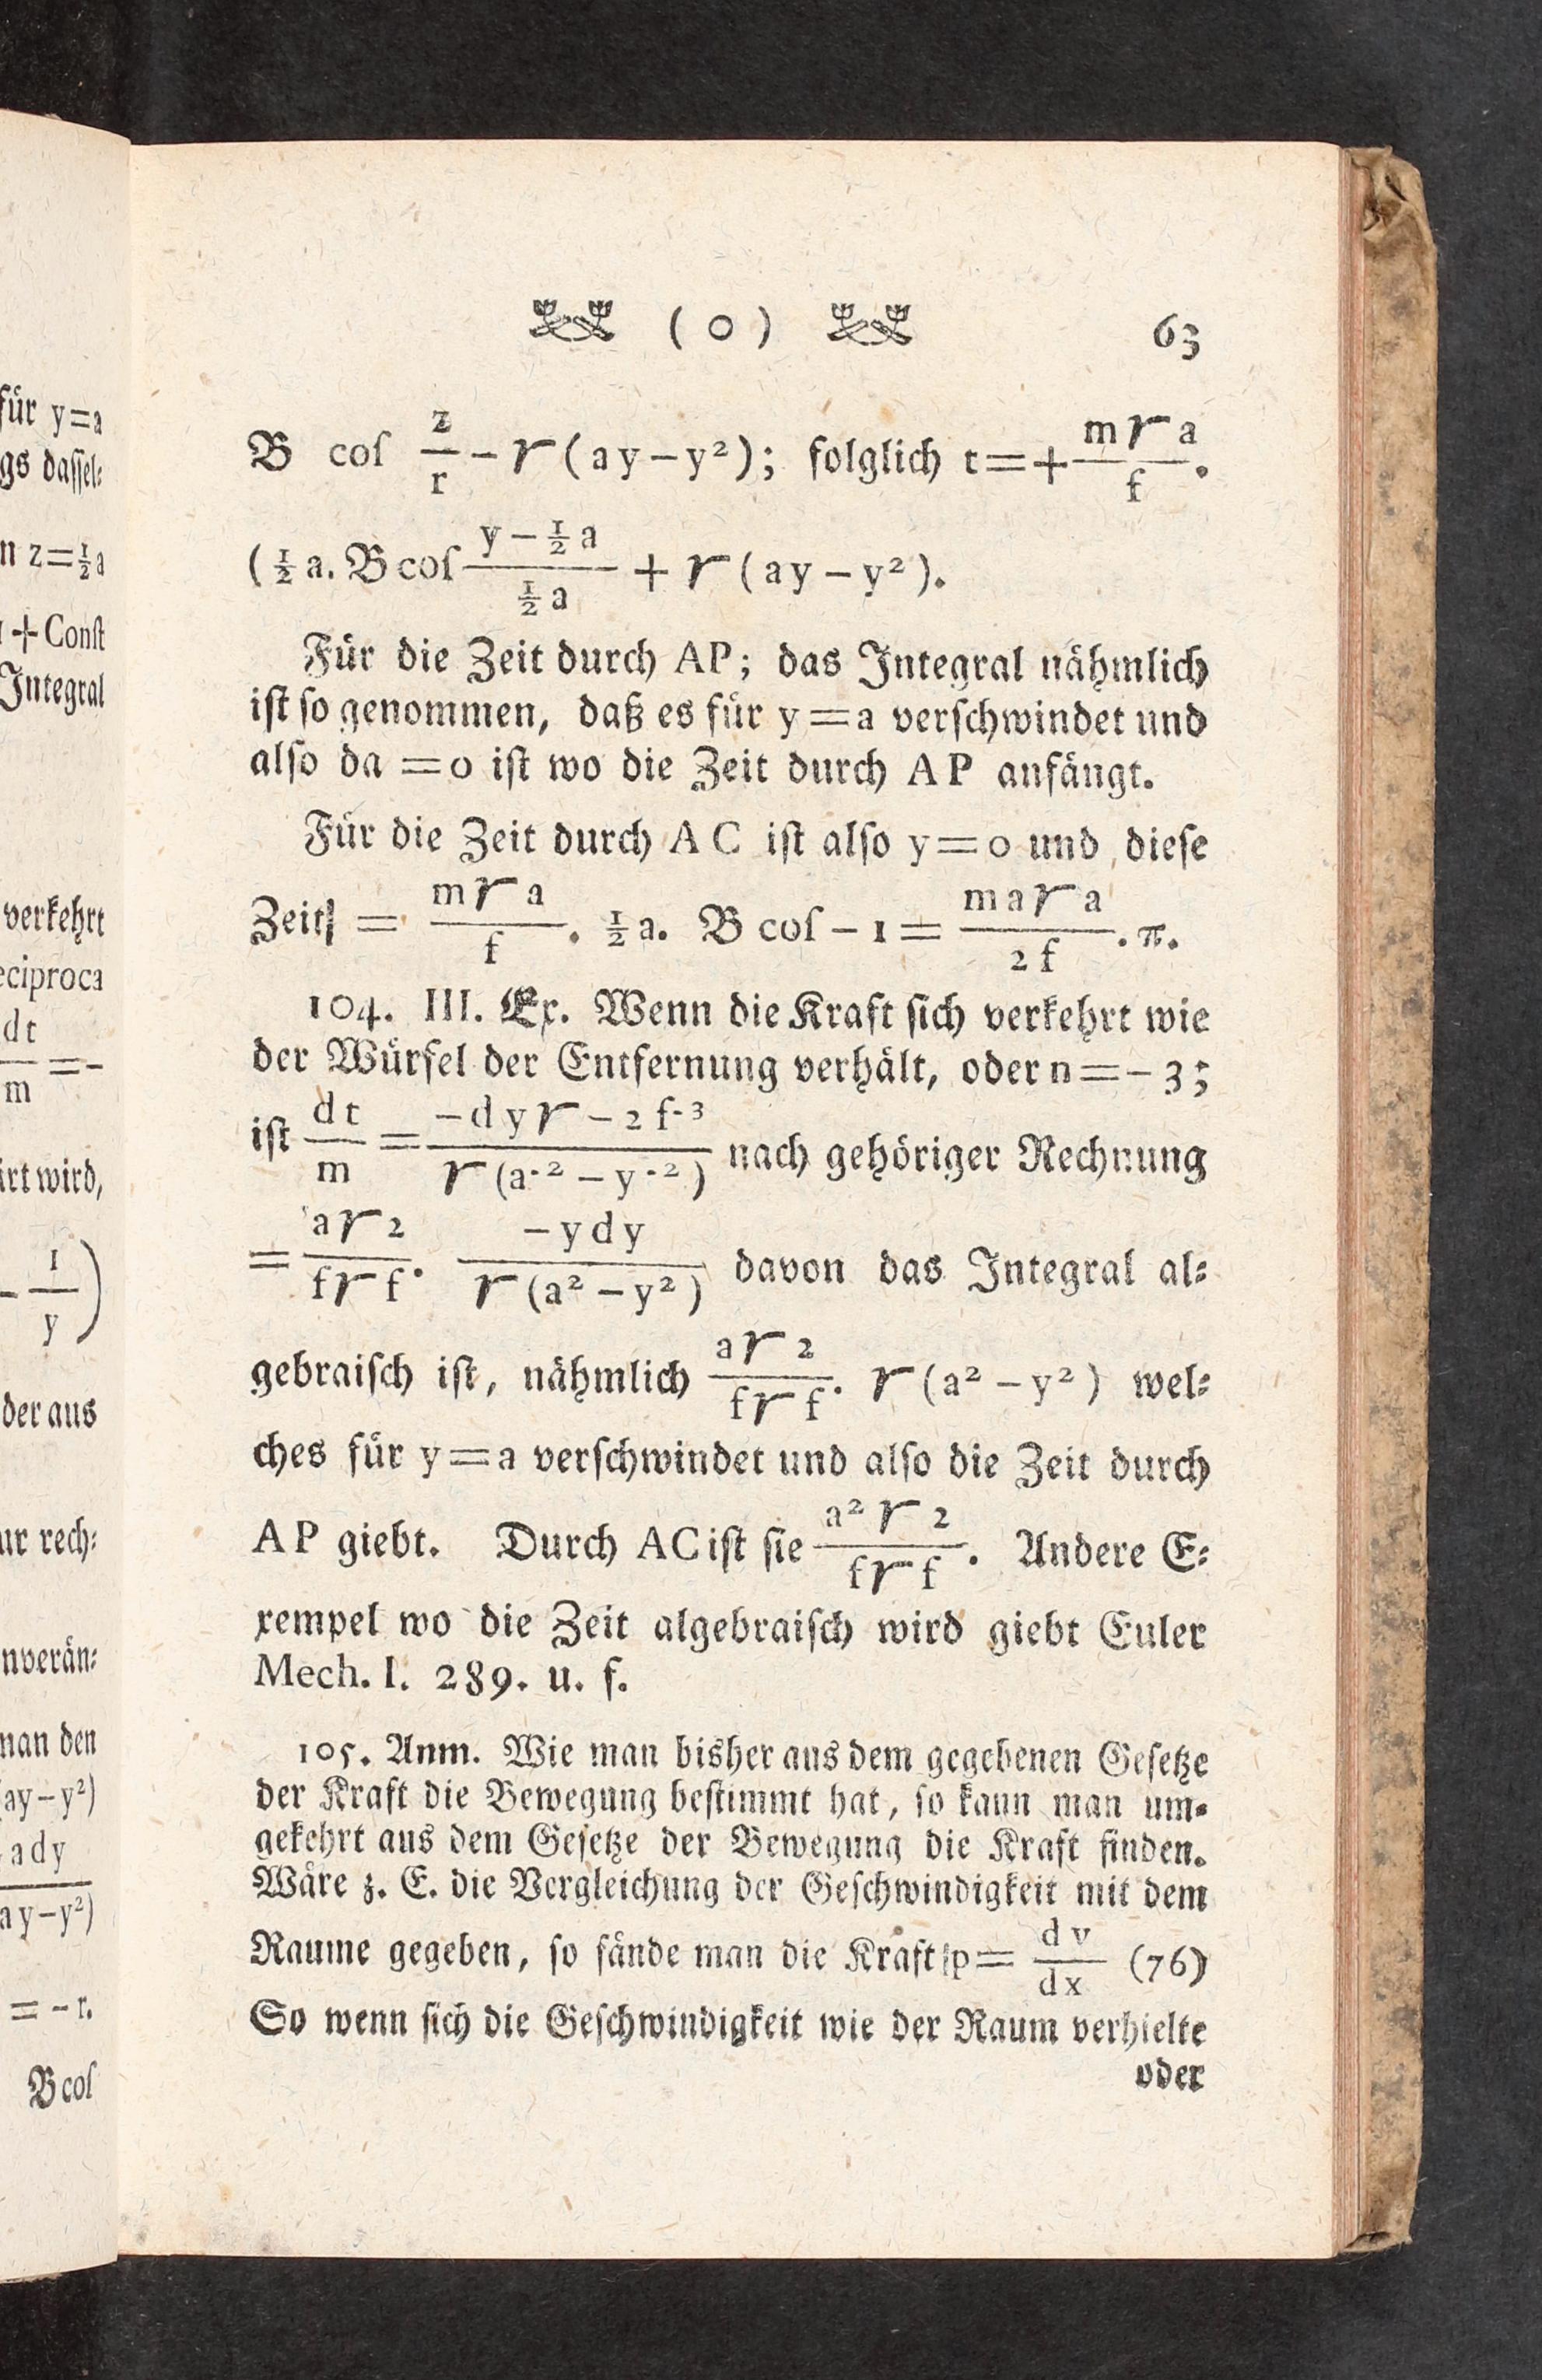 für y=a
gs dassel⸗
n z=½a
+Const
Integral
verkehrt
eciproca
dt
— =-
m
irt wird,
- 1/y )
der aus
ur rech⸗
nverän⸗
nan den
ay-y²)
ady
ay-y²)
= -r.
B coſ
( 0 ) 63
B coſ z/r - √(ay-y²); folglich t=+ m√a/f .
(½a. B coſ (y-½a)/(½a) + √(ay-y²).
Für die Zeit durch AP; das Integral nähmlich
iſt ſo genommen, daß es für y=a verſchwindet und
alſo da =0 iſt wo die Zeit durch AP anfängt.
Für die Zeit durch AC iſt alſo y=0 und dieſe
Zeit = m√a/f . ½a. B coſ -1 = ma√a/2f . π.
104. III. Ex. Wenn die Kraft ſich verkehrt wie
der Würfel der Entfernung verhält, oder n=-3;
iſt dt/m = -dy√-2f·³/√(a·²-y·²) nach gehöriger Rechnung
= a√2/f√f . -ydy/√(a²-y²) davon das Integral al⸗
gebraiſch iſt, nähmlich a√2/f√f . √(a²-y²) wel⸗
ches für y=a verſchwindet und alſo die Zeit durch
AP giebt. Durch AC iſt ſie a²√2/f√f . Andere E⸗
xempel wo die Zeit algebraiſch wird giebt Euler
Mech. I. 289. u. f.
105. Anm. Wie man bisher aus dem gegebenen Geſetze
der Kraft die Bewegung beſtimmt hat, ſo kann man um⸗
gekehrt aus dem Geſetze der Bewegung die Kraft finden.
Wäre z. E. die Vergleichung der Geſchwindigkeit mit dem
Raume gegeben, ſo fände man die Kraft p= dv/dx (76)
So wenn ſich die Geſchwindigkeit wie der Raum verhielte
oder